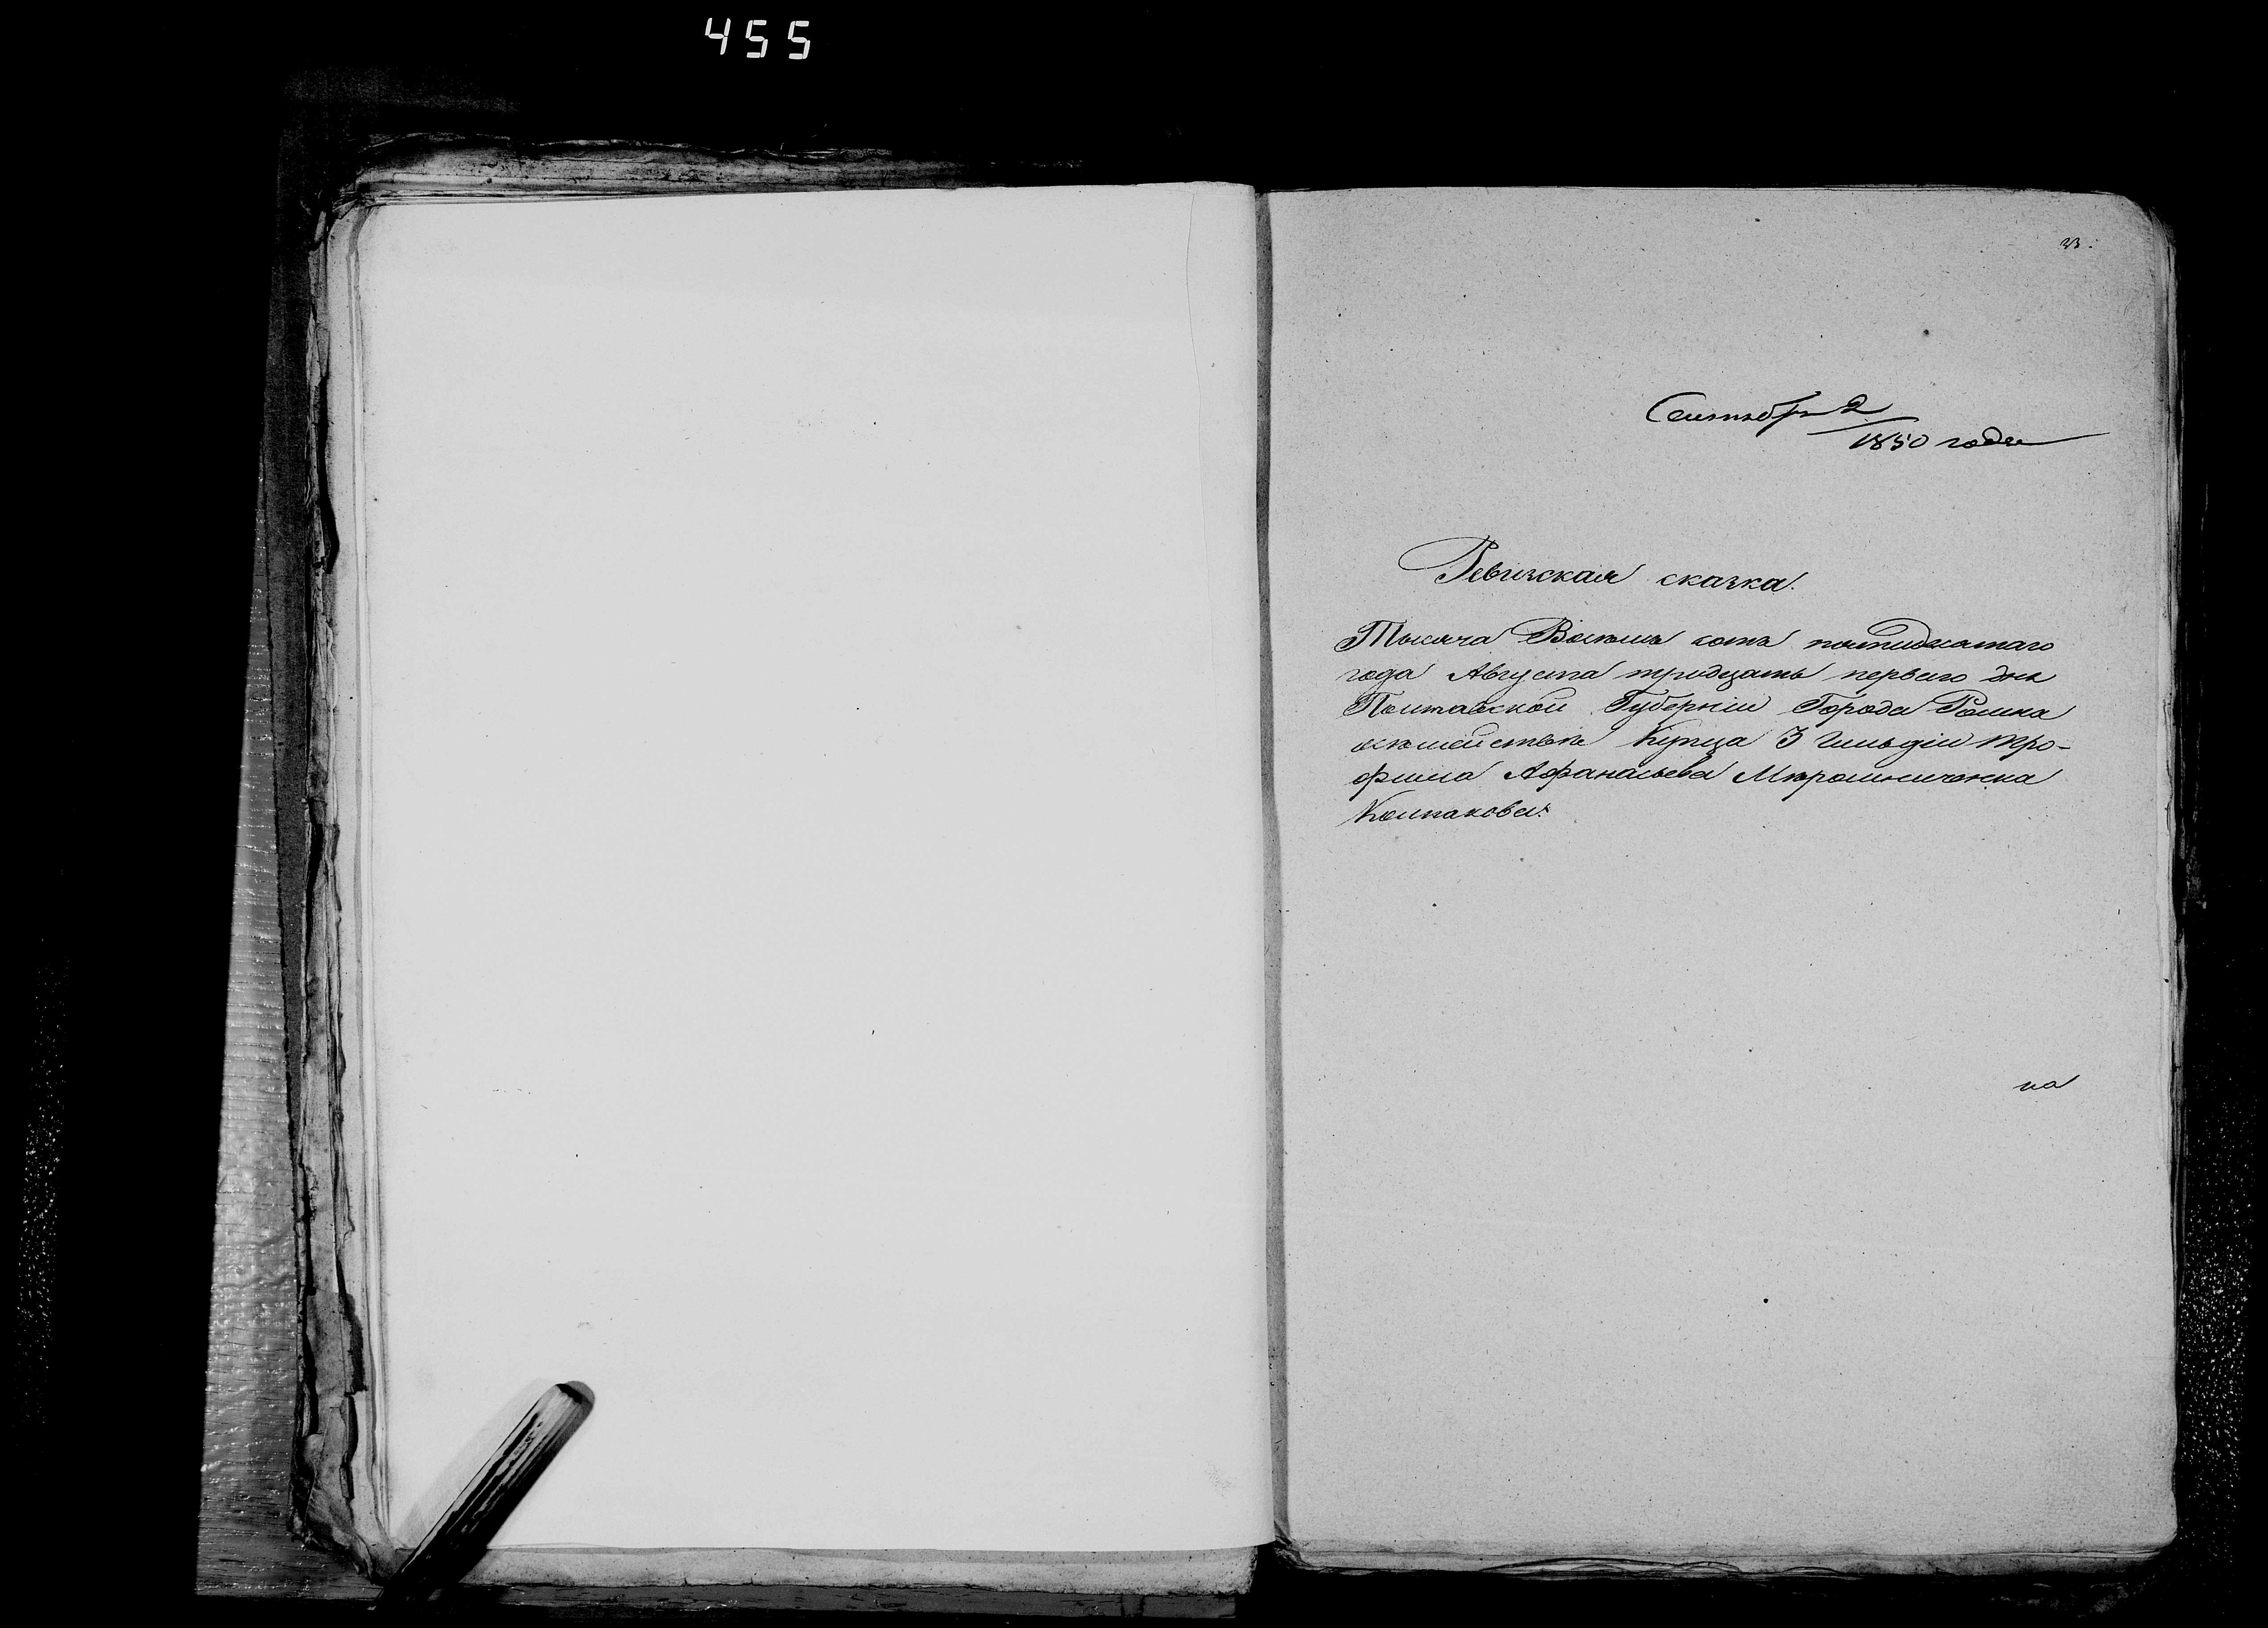 455
23.
Сентября 2
1850 года
Ревизская сказка.
Тысяча Восемь сотъ пятидесятаго
года Августа тридцать перваго дня
Полтавской Губерніи Города Ромна
осѣмействѣ Купца 3 Гильдіи Тро-
фима Афанасьева Мѣрошниченка
Колпакова.
на